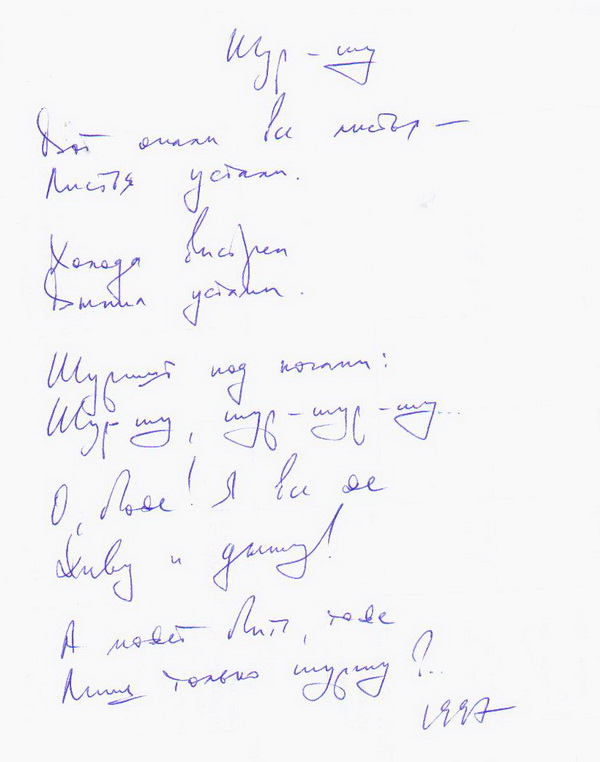 Шур-шу
Вот опали все листья –
Листья устали.
Холода
устали.
Шуршат под ногами:
Шур-шу, шур-шур-шу...
О, Боже! Я все же
Живу и дышу!
А может быть, тоже
Лишь только шуршу?..
1997